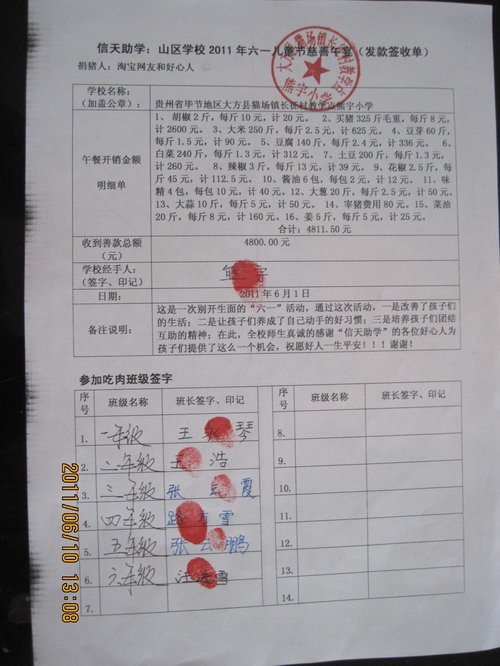 信天助学：山区学校 2011 年六一儿童节慈善午宴（发款签收单）
捐猪人：淘宝网友和好心人
学校名称：
（加盖公章）：
贵州省毕节地区大方县猫场镇长征村教学点熊宇小学
午餐开销金额
明细单
1、 胡椒 2 斤，每斤 10 元，计 20 元。 2、买猪 325 斤毛重，每斤 8 元，
计 2600 元。 3、大米 250 斤，每斤 2.5 元，计 625 元。 4、豆芽 60 斤，
每斤 1.5 元，计 90 元。 5、豆腐 140 斤，每斤 2.4 元，计 336 元。 6、
白菜 240 斤，每斤 1.3 元，计 312 元。 7、土豆 200 斤，每斤 1.3 元，
计 260 元。 8、辣椒 3 斤，每斤 13 元，计 39 元。 9、花椒 2.5 斤，每
斤 45 元，计 112.5 元。 10、酱油 6 包，每包 2 元，计 12 元。 11、味
精 4 包，每包 10 元，计 40 元。12、大葱 20 斤，每斤 2.5 元，计 50 元。
13、大蒜 10 斤，每斤 5 元，计 50 元。 14、宰猪费用 80 元。15、菜油
20 斤，每斤 8 元，计 160 元。16、姜 5 斤，每斤 5 元，计 25 元。
合计：4811.50 元
收到善款总额
（元）
4800.00 元
学校经手人：
（签字、印记）
熊宇
日期：
2011 年 6 月 1 日
备注说明：
这是一次别开生面的“六一”活动，通过这次活动，一是改善了孩子们
的生活；二是让孩子们养成了自己动手的好习惯；三是培养孩子们团结
互助的精神；在此，全校师生真诚的感谢“信天助学”的各位好心人为
孩子们提供了这么一个机会，祝愿好人一生平安！！！谢谢！
参加吃肉班级签字
序号 班级名称 班长签字、印记 序号 班级名称 班长签字、印记
1. 一年级 王 琴 8.
2. 二年级 王 浩 9.
3. 三年级 张 霞 10.
4. 四年级 雪 11.
5. 五年级 张 鹏 12.
6. 六年级 汪 雪 13.
7. 14.
大方县猫场镇长征村教学点
熊宇小学
2011/06/10 13:08